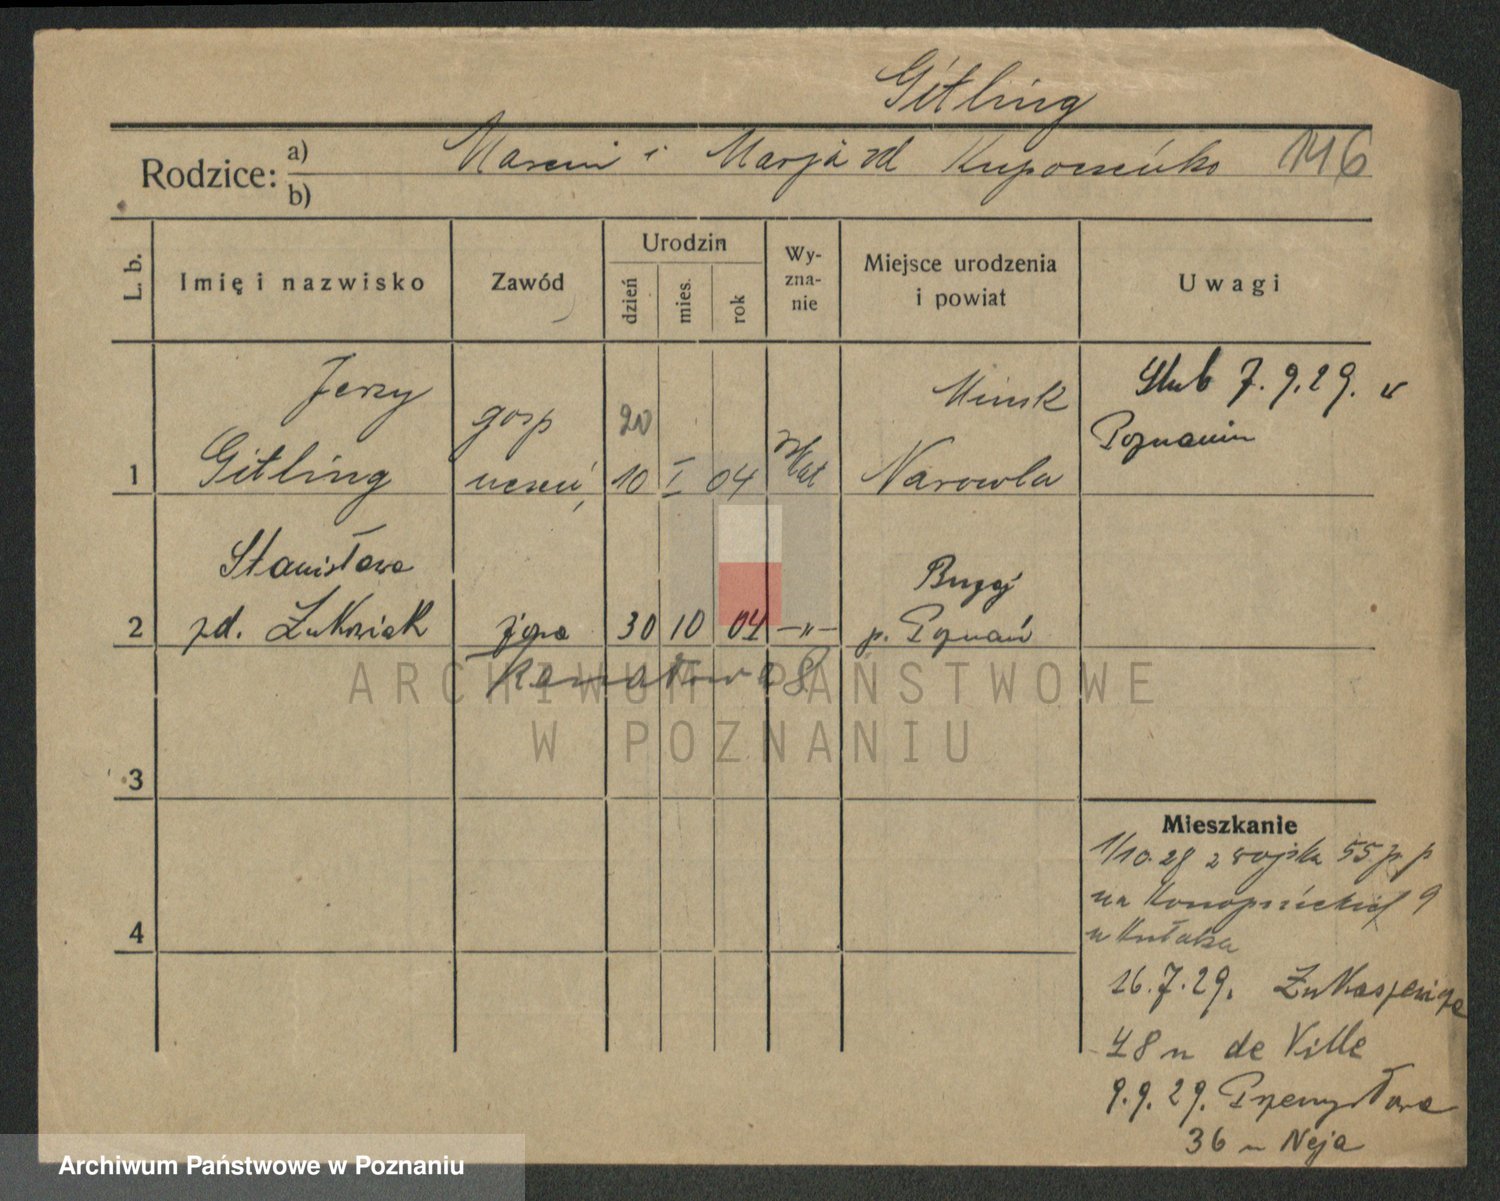 Gitling
Rodzice: a) Marcin i Marja zd 1416
b)
L. b.
Imię i nazwisko
Zawód
Urodzin
dzień
mies.
rok
Wy-
zna-
nie
Miejsce urodzenia
i powiat
Uwagi
1
Jerzy
Gitling
gosp
uczeń
20
10 I 04
Kat
Minsk
Narowla
Ślub 7.9.29. w
Poznaniu
2
Stanisława
zd. Łukowiak
żona
30 10 04 —„—
Bugaj
p. Poznań
3
4
Mieszkanie
1/10.28 z wojska 55 p. p
na Konopnickiej 9
u Kułaka
26.7.29. Łukaszewicza
48 u de Ville
9.9.29. Przemysłowa
36 u Neja
ARCHIWUM PAŃSTWOWE
W POZNANIU
Archiwum Państwowe w Poznaniu